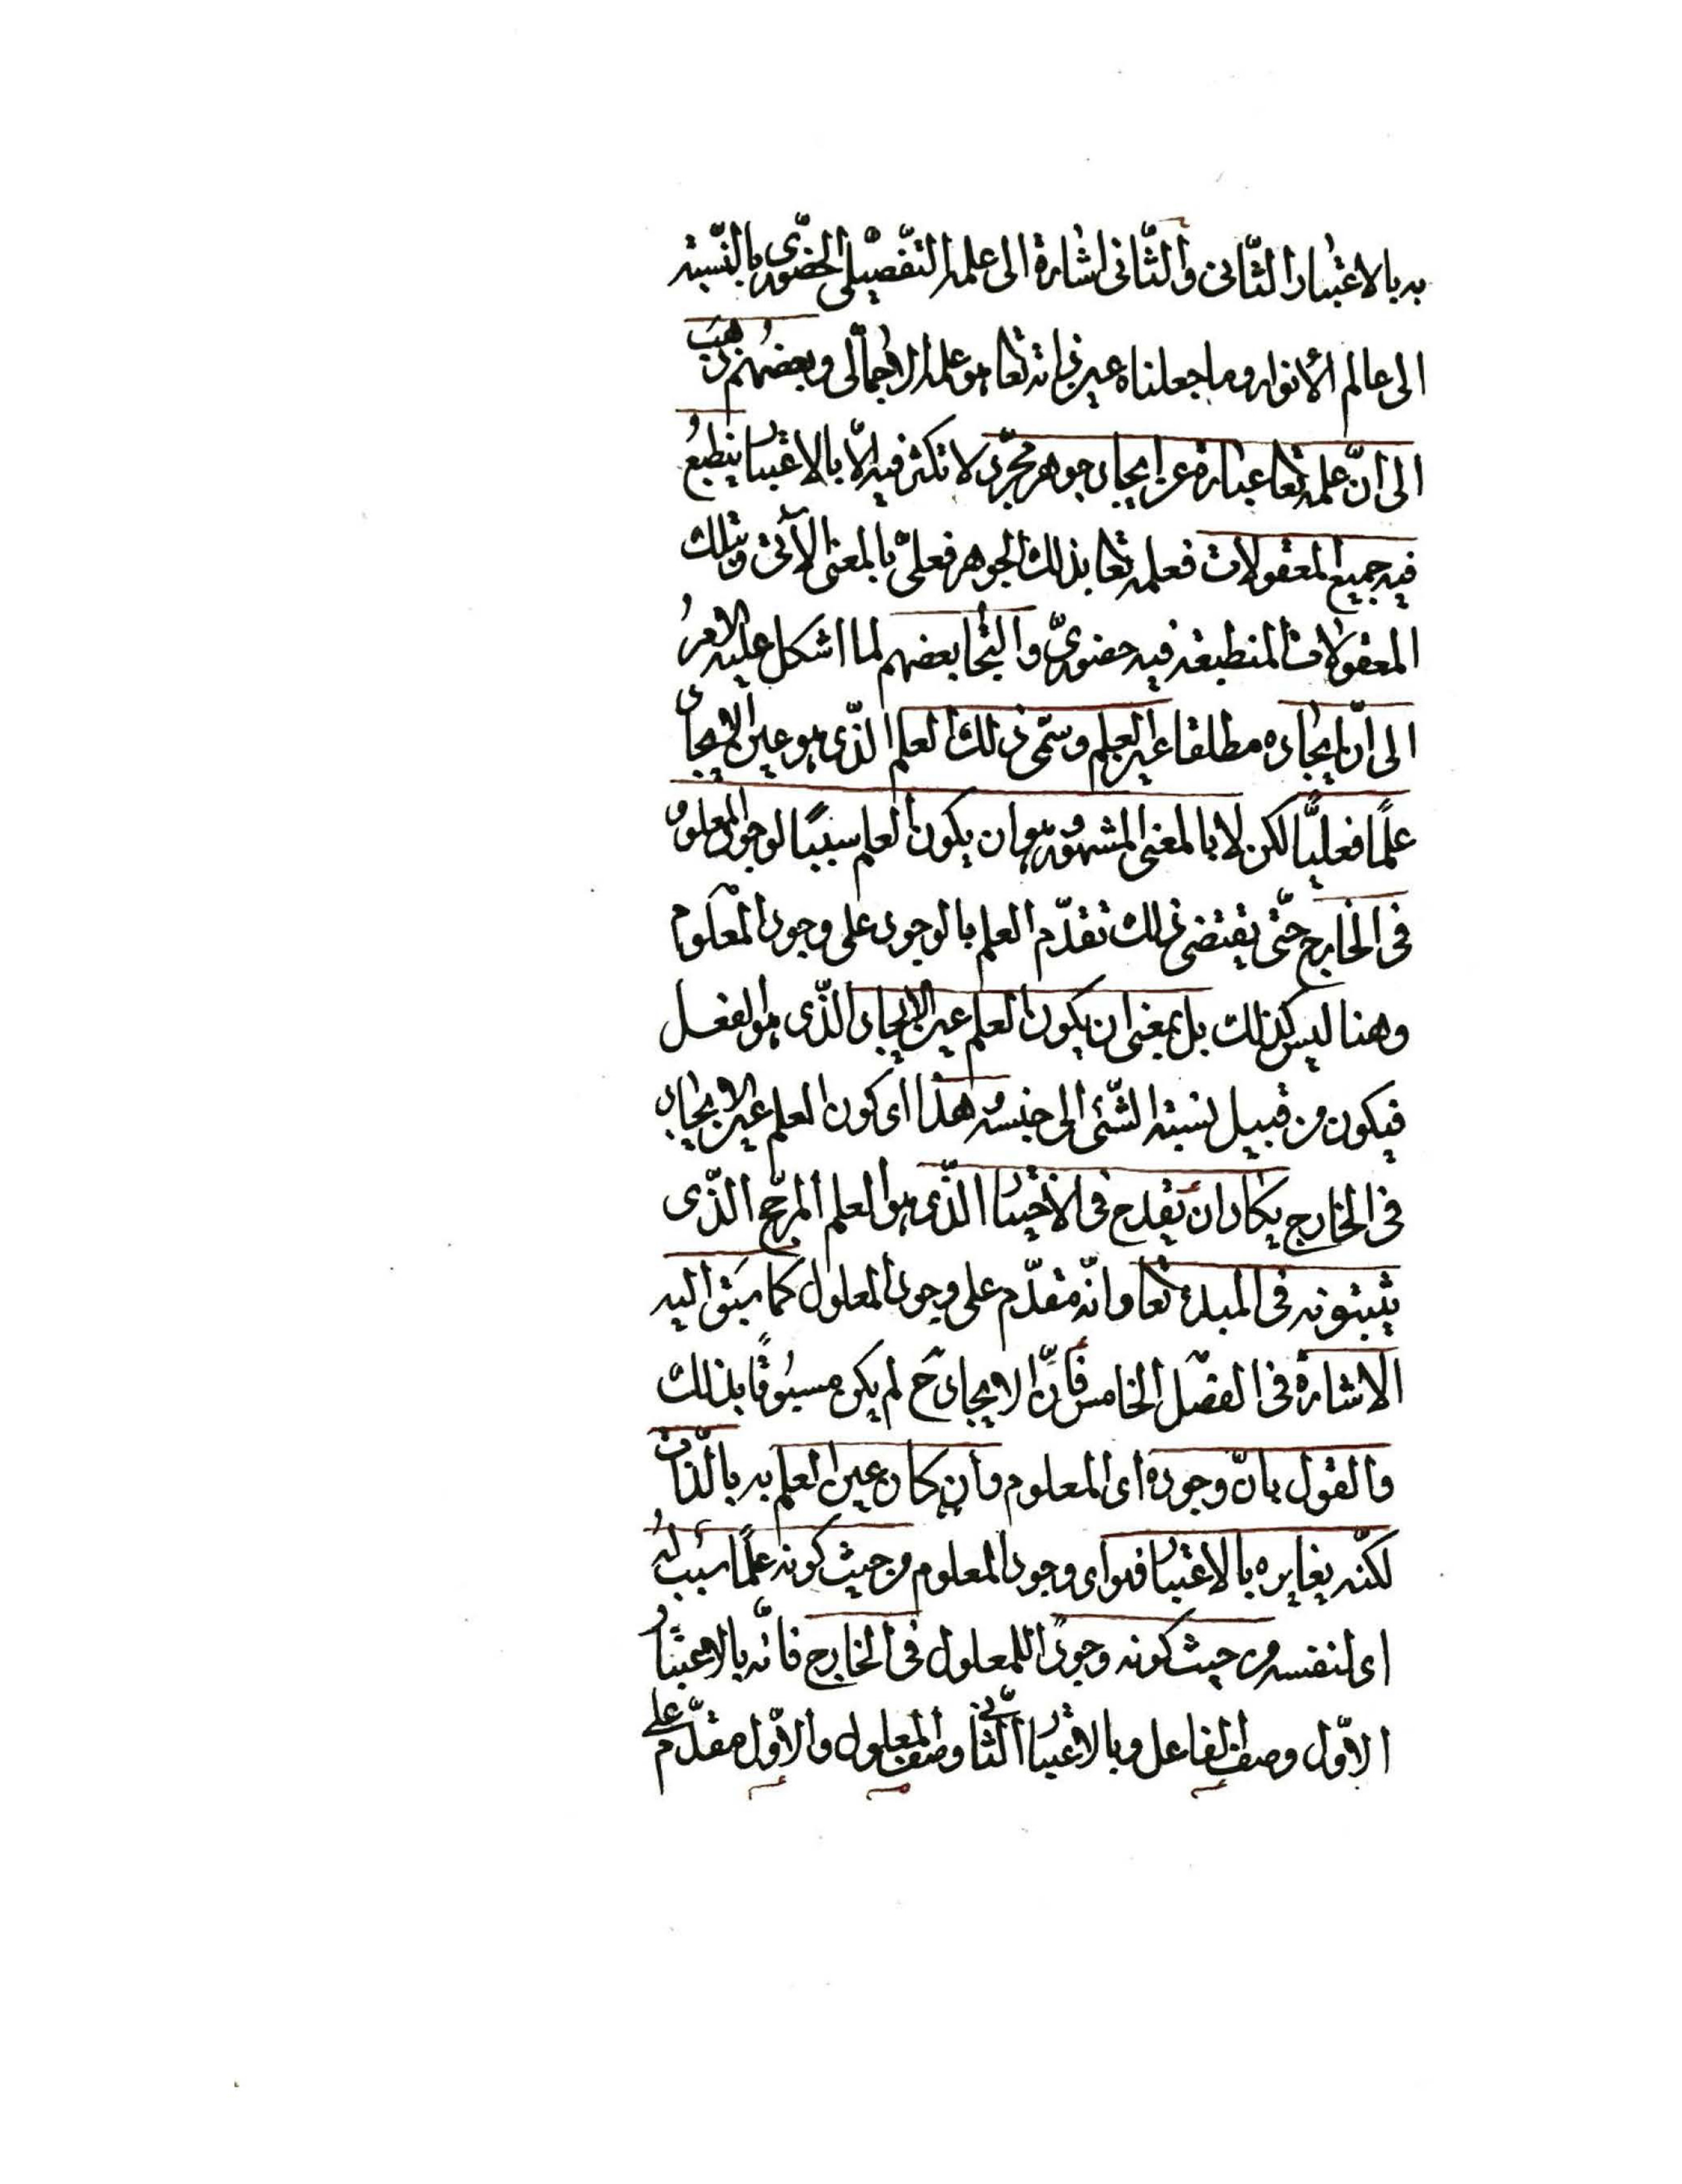 به بالاعتبار الثّانى والثّانى اشارة الى علمه التّفصيلى الحضورى بالنّسبة
الى عالم الأنوار وما جعلناه عين ذاته تعا هو علمه الاجمالى وبعضهم ذهب
الى انّ علمه تعا عبارة عن ايجاد جوهر مجرّد لا تكثر فيه الّا بالاعتبار ينطبع
فيه جميع المعقولات فعلمه تعا بذلك الجوهر فعلىّ بالمعنى الآتى وبتلك
المعقولات المنطبعة فيه حضورىّ والتجا بعضهم لما اشكل عليه الامر
الى انّ ايجاده مطلقا عين العلم وسمّى ذلك العلم الذّى هو عين الايجاد
علمًا فعليًّا لكن لا بالمعنى المشهور وهو ان يكون العلم سببًا لوجود المعلوم
فى الخارج حتّى يقتضى ذلك تقدّم العلم بالوجود على وجود المعلوم
وهنا ليس كذلك بل بمعنى ان يكون العلم عين الايجاد الذّى هو الفعل
فيكون من قبيل نسبة الشّئ الى جنسه وهذا اى كون العلم عين الايجاد
فى الخارج يكاد ان يقدح فى الاختيار الذّى هو العلم المرجّح الذّى
يثبتونه فى المبدء تعا وانّه متقدّم على وجود المعلول كما سبق اليه
الاشارة فى الفصل الخامس فانّ الايجاد ح لم يكن مسبوقًا بذلك
والقول بانّ وجوده اى المعلوم وان كان عين العلم به بالذّات
لكنّه يغايره بالاعتبار فهو اى وجود المعلوم من حيث كونه علمًا سبب له
اى لنفسه من حيث كونه وجودًا للمعلول فى الخارج فانّه بالاعتبار
الاوّل وصف الفاعل وبالاعتبار الثّانى وصف المعلول والاوّل مقدّم على